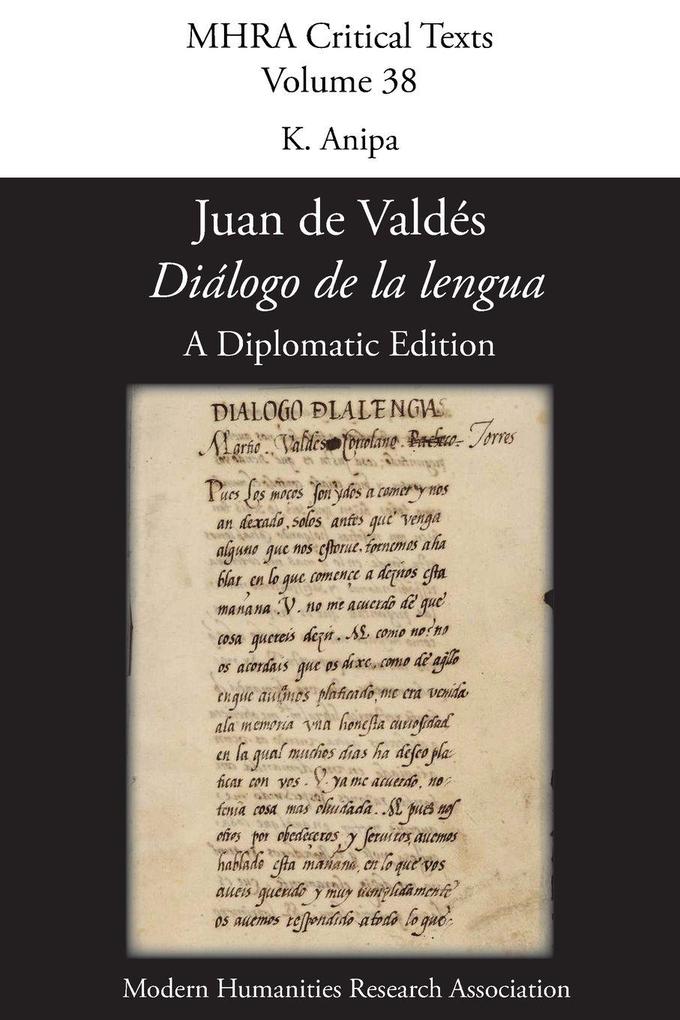 MHRA Critical Texts
Volume 38
K. Anipa
Juan de Valdés
Diálogo de la lengua
A Diplomatic Edition
DIALOGO DLALENGVA
Martio. Valdes Coriolano. Pacheco. Torres
Pues Los moços son ydos a comer y nos
an dexado, solos antes que venga
alguno que nos estorue, tornemos aha
blar en lo que comence a deziros esta
mañana .V. no me acuerdo de que
cosa quereis dezir. M. como no? no
os acordais que os dixe, como de aq̃llo
enque platicado, me era venida
ala memoria vna honesta curiosidad
en la qual muchos dias ha deseo pla-
ticar con vos. V. ya me acuerdo, no-
tenia cosa mas oluidada. M pues nos
otros por obedeceros y seruiros, auemos
hablado esta mañana, en lo que vos
aueis querido y muy cumplidamente
os auemos respondido atodo lo que-
Modern Humanities Research Association